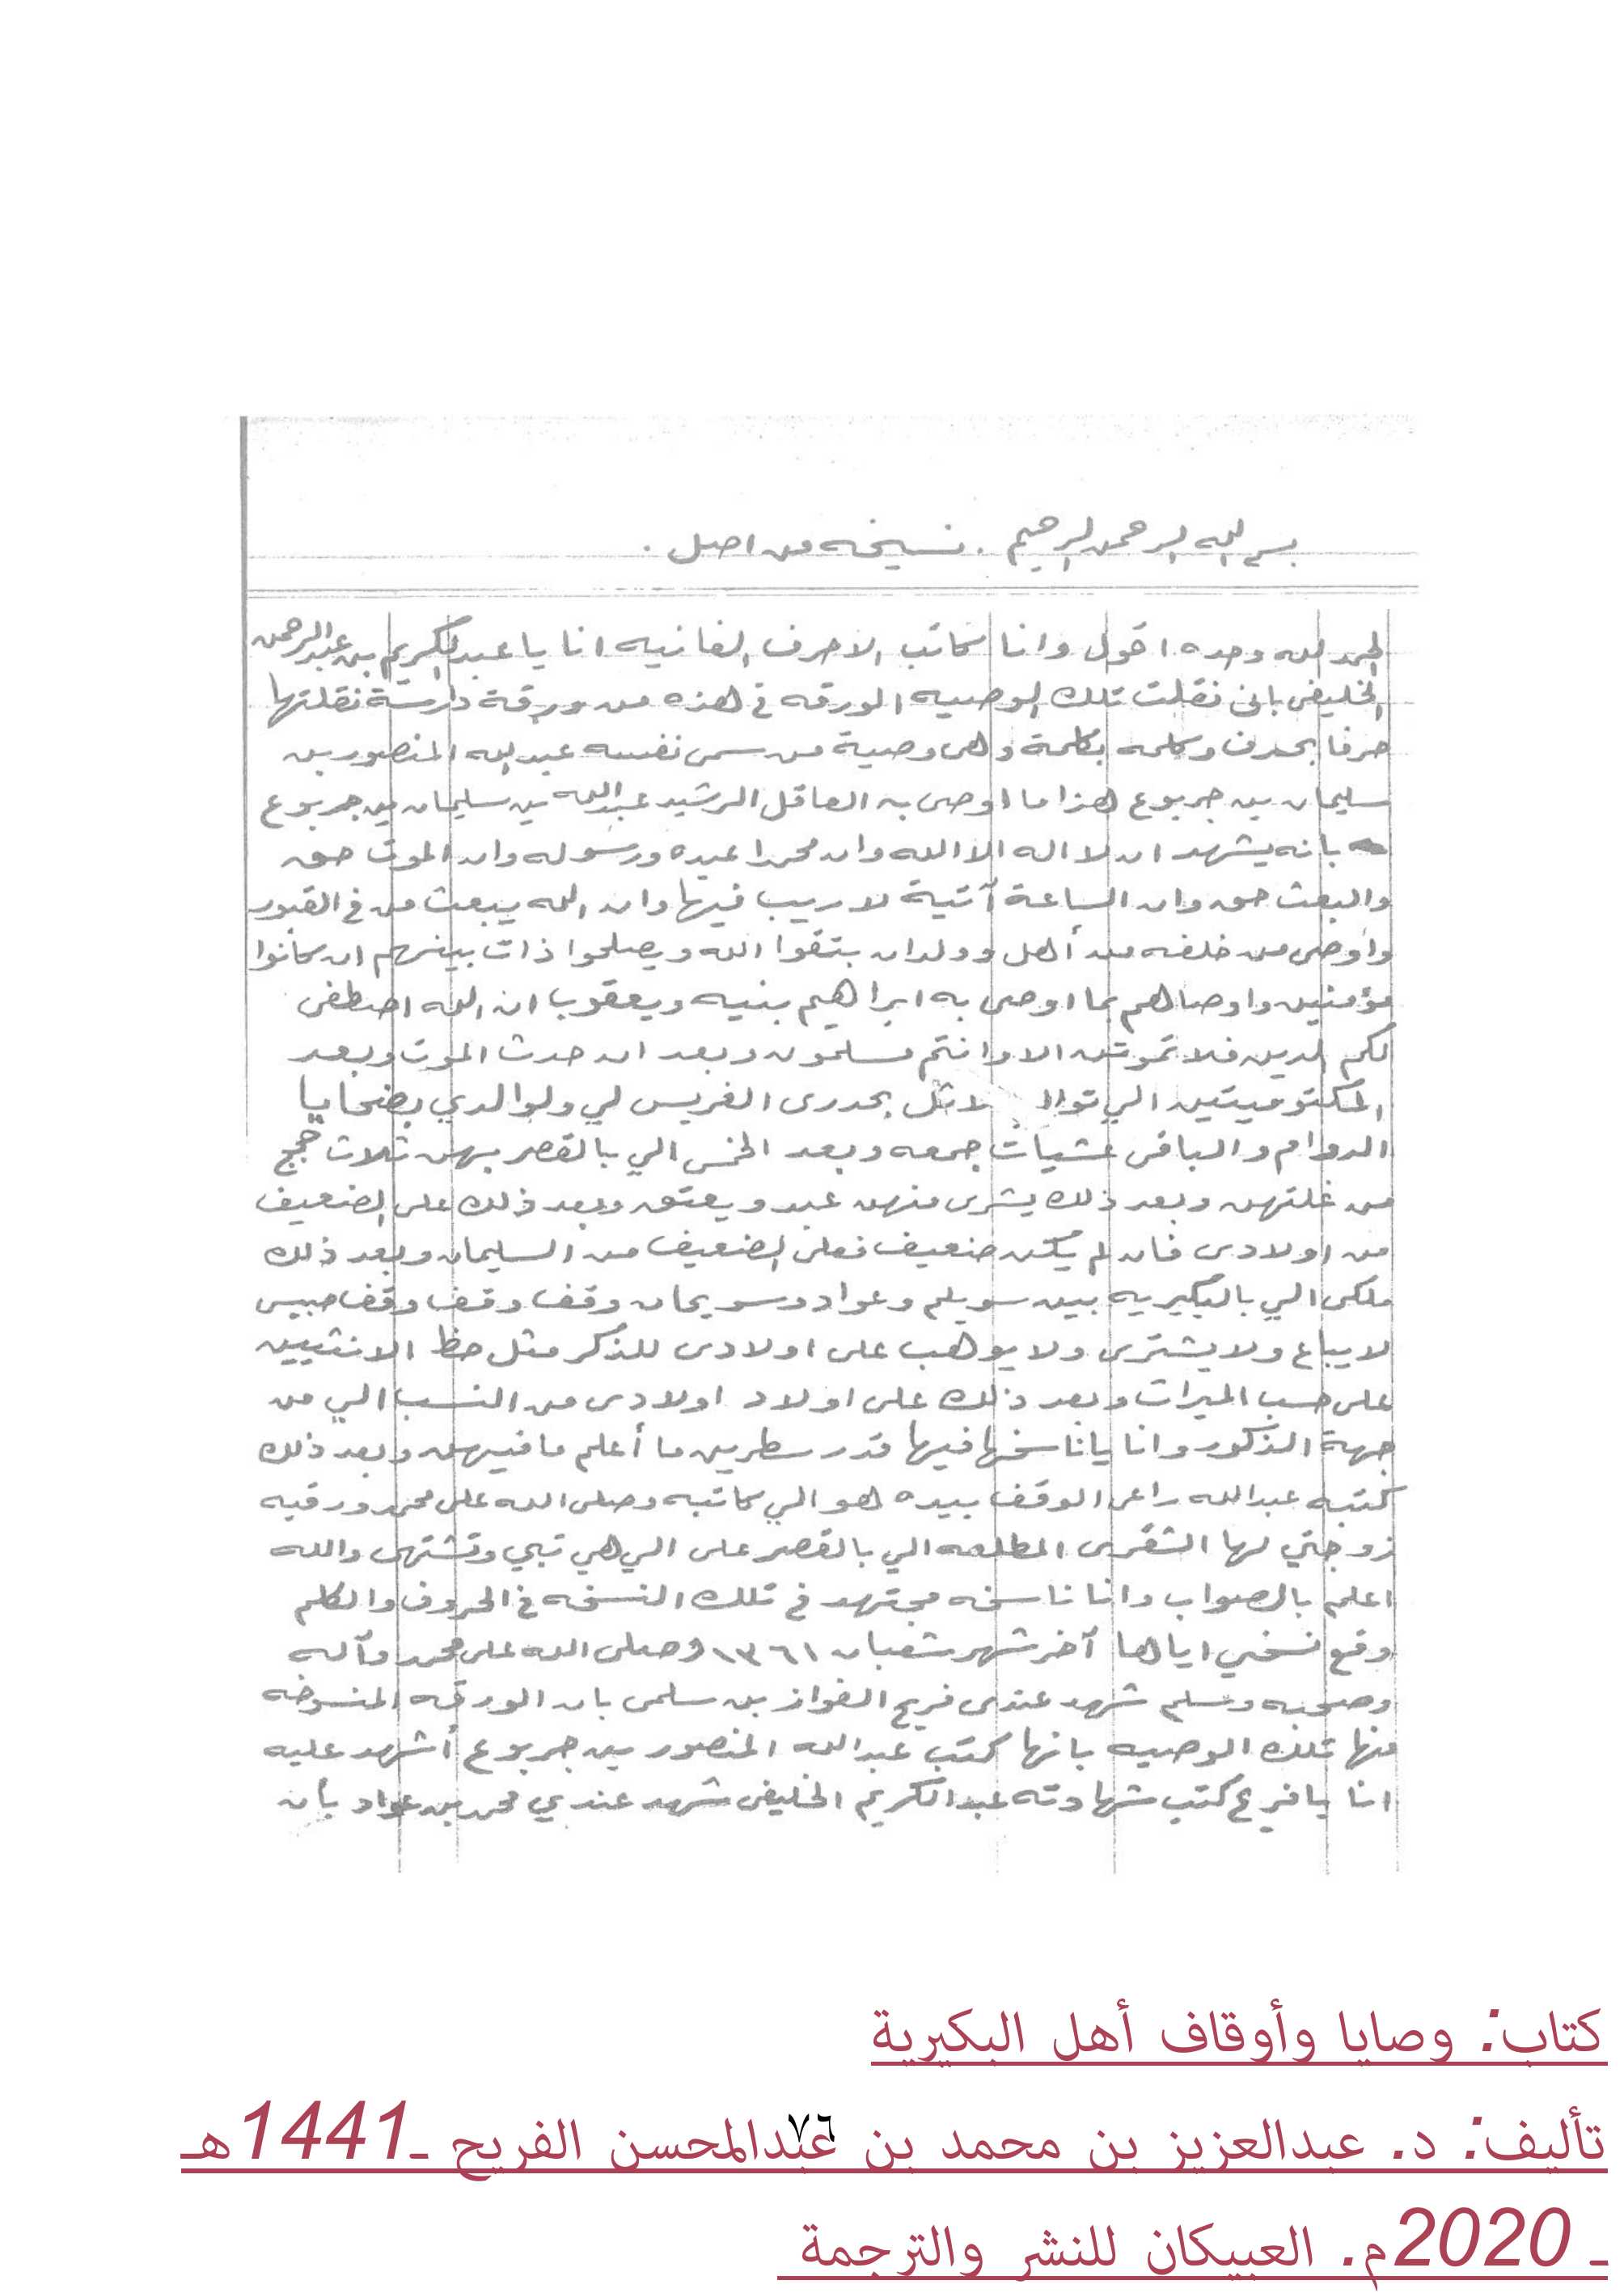 بسم الله الرحمن الرحيم . نسيخه من اصل .
الحمد لله وحده اقول وانا كاتب الاحرف الفانيه انا يا عبدالكريم بن عبدالرحمن
الخليفي باني نقلت تلك الوصيه الورقه في هذه من ورقة دارسة نقلتها
حرفا بحرف وكلمه بكلمة وهي وصية من سمى نفسه عبدالله المنصور بن
سليمان بن جربوع هذا ما اوصى به العاقل الرشيد عبدالله بن سليمان بن جربوع
بانه يشهد ان لا اله الا الله وان محمدا عبده ورسوله وان الموت حق
والبعث حق وان الساعة آتية لا ريب فيها وان الله يبعث من في القبور
واوصى من خلفه من أهل وولدان بتقوا الله ويصلحوا ذات بينهم ان كانوا
مؤمنين واوصاهم بما اوصى به ابراهيم بنيه ويعقوب ان الله اصطفى
لكم الدين فلا تموتن الا وانتم مسلمون وبعد ان حدث الموت وبعد
المكتوميتين الي توالـ لاثل بحدرى الغريس لي ولوالدي بضحايا
الدوام والباقى عشيات جمعه وبعد الخمس الي بالقصر بهن ثلاث حجج
من غلتهن وبعد ذلك يشرى منهن عبد ويعتق وبعد ذلك على الضعيف
من اولادى فان لم يكن ضعيف فعلى الضعيف من السليمان وبعد ذلك
ملكى الي بالبكيريه بين سويلم وعواد وسويحان وقف وقف وقف حبيس
لا يباع ولا يشترى ولا يوهب على اولادى للذكر مثل حظ الانثيين
على حسب الميراث وبعد ذلك على اولاد اولادى من النسب الي من
جهة الذكور وانا يا ناسخها فيها قدر سطرين ما أعلم ما فيهن وبعد ذلك
كتبه عبدالله راعى الوقف بيده هو الي كاتبه وصلى الله على محمد ورقيه
زوجتي لها الشقرى المطلعه الي بالقصر على الي هي تبي وتشتهى والله
اعلم بالصواب وانا ناسخه مجتهد في تلك النسخه في الحروف والكلم
وقع نسخي اياها آخر شهر شعبان ١٣٦١ وصلى الله على محمد وآله
وصحبه وسلم شهد عندى فريح الفواز بن سلمى بان الورقه المنسوخه
منها تلك الوصيه بانها كتب عبدالله المنصور بن جربوع أشهد عليه
انا يا فريح كتب شهادته عبدالكريم الخليفى شهد عندي محمد بن عواد بأن
كتاب: وصايا وأوقاف أهل البكيرية
٧٦
تأليف: د. عبدالعزيز بن محمد بن عبدالمحسن الفريح ـ1441هـ
ـ 2020م. العبيكان للنشر والترجمة